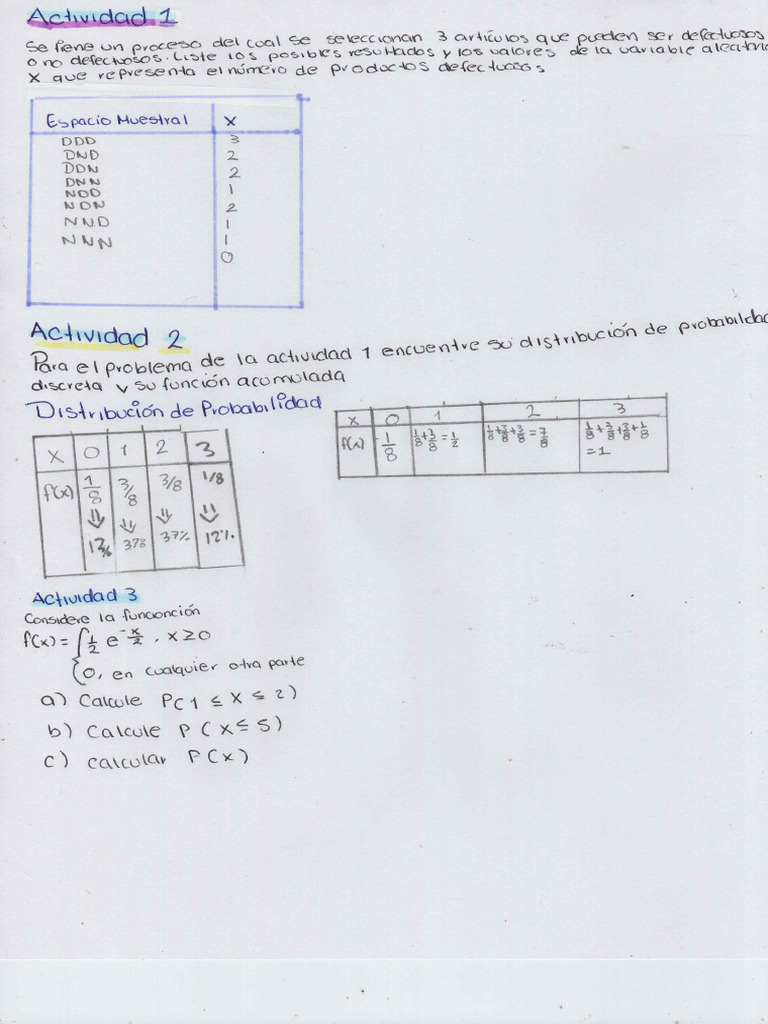 Actividad 1
Se tiene un proceso del cual se seleccionan 3 artículos que pueden ser defectuosos
o no defectuosos. Liste los posibles resultados y los valores de la variable aleatoria
X que representa el número de productos defectuosos
Espacio Muestral X
DDD 3
DND 2
DDN 2
DNN 1
NDD 2
NDN 1
NND 1
NNN 0
Actividad 2
Para el problema de la actividad 1 encuentre su distribución de probabilidad
discreta y su función acumulada
Distribución de Probabilidad
X 0 1 2 3
f(x) 1/8 3/8 3/8 1/8
⇓ ⇓ ⇓ ⇓
12% 37% 37% 12%
X 0 1 2 3
f(x) 1/8 1/8+3/8=1/2 1/8+3/8+3/8=7/8 1/8+3/8+3/8+1/8
=1
Actividad 3
Considere la funcionción
f(x) = { 1/2 e^-x/2 , x ≥ 0
0, en cualquier otra parte
a) Calcule P(1 ≤ X ≤ 2)
b) Calcule P (X ≤ 5)
c) calcular P(x)